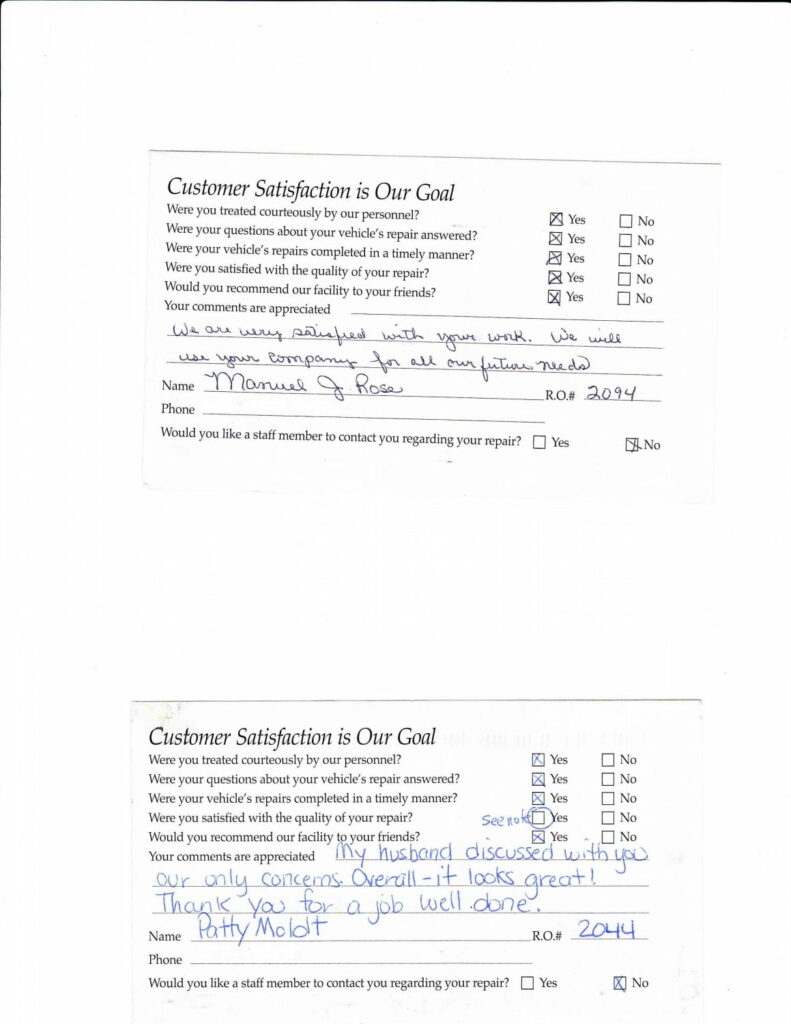 Customer Satisfaction is Our Goal
Were you treated courteously by our personnel? ☒ Yes ☐ No
Were your questions about your vehicle's repair answered? ☒ Yes ☐ No
Were your vehicle's repairs completed in a timely manner? ☒ Yes ☐ No
Were you satisfied with the quality of your repair? ☒ Yes ☐ No
Would you recommend our facility to your friends? ☒ Yes ☐ No
Your comments are appreciated
We are very satisfied with your work. We will
use your company for all our future needs
Name Manuel J. Rose R.O.# 2094
Phone
Would you like a staff member to contact you regarding your repair? ☐ Yes ☒ No
Customer Satisfaction is Our Goal
Were you treated courteously by our personnel? ☒ Yes ☐ No
Were your questions about your vehicle's repair answered? ☒ Yes ☐ No
Were your vehicle's repairs completed in a timely manner? ☒ Yes ☐ No
Were you satisfied with the quality of your repair? See note ☐ Yes ☐ No
Would you recommend our facility to your friends? ☒ Yes ☐ No
Your comments are appreciated My husband discussed with you
our only concerns. Overall - it looks great!
Thank you for a job well done.
Name Patty Moldt R.O.# 2044
Phone
Would you like a staff member to contact you regarding your repair? ☐ Yes ☒ No